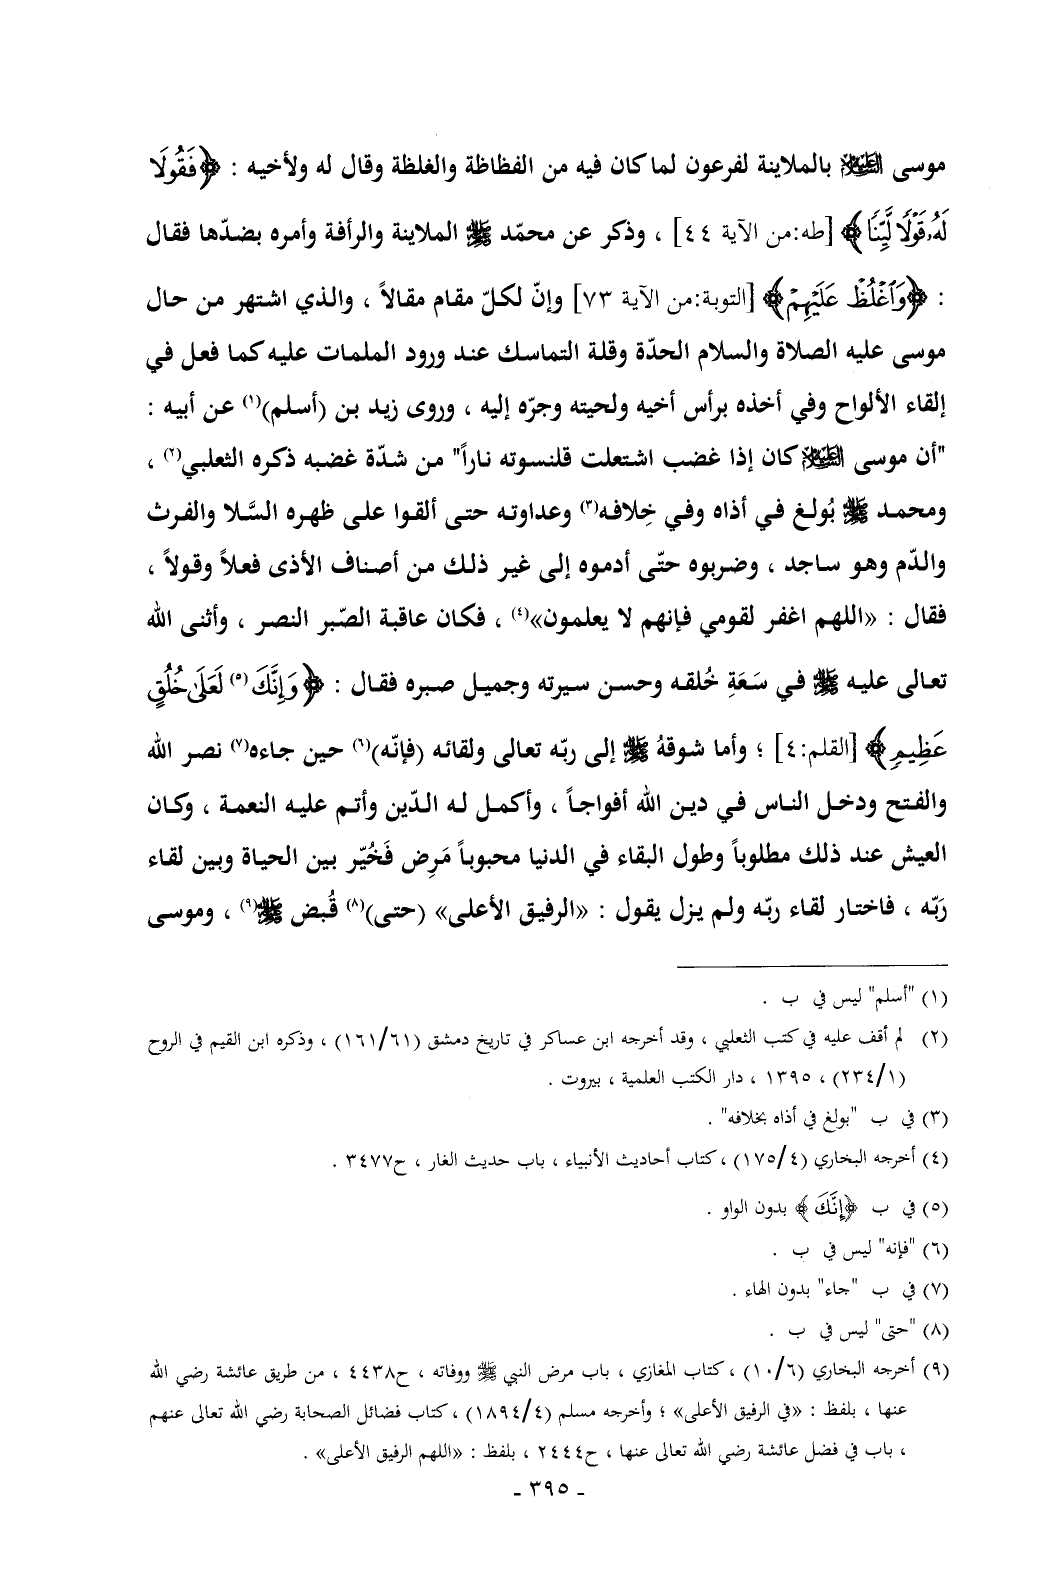 موسى العليه السلام بالملاينة لفرعون لما كان فيه من الفظاظة والغلظة وقال له ولأخيه : ﴿فَقُولَا
لَهُۥ قَوْلًا لَّيِّنًا﴾ [طه:من الآية ٤٤] ، وذكر عن محمّد ﷺ الملاينة والرأفة وأمره بضدّها فقال
: ﴿وَٱغْلُظْ عَلَيْهِمْ﴾ [التوبة:من الآية ٧٣] وإنّ لكلّ مقام مقالاً ، والذي اشتهر من حال
موسى عليه الصلاة والسلام الحدّة وقلة التماسك عند ورود الملمات عليه كما فعل في
إلقاء الألواح وفي أخذه برأس أخيه ولحيته وجرّه إليه ، وروى زيد بن (أسلم)(١) عن أبيه :
"أن موسى العليه السلام كان إذا غضب اشتعلت قلنسوته ناراً" من شدّة غضبه ذكره الثعلبي(٢) ،
ومحمد ﷺ بُولغ في أذاه وفي خِلافه(٣) وعداوته حتى ألقوا على ظهره السَّلا والفرث
والدّم وهو ساجد ، وضربوه حتّى أدموه إلى غير ذلك من أصناف الأذى فعلاً وقولاً ،
فقال : «اللهم اغفر لقومي فإنهم لا يعلمون»(٤) ، فكان عاقبة الصّبر النصر ، وأثنى الله
تعالى عليه ﷺ في سَعَةِ خُلقه وحسن سيرته وجميل صبره فقال : ﴿وَإِنَّكَ(٥) لَعَلَىٰ خُلُقٍ
عَظِيمٍ﴾ [القلم:٤] ؛ وأما شوقهُ ﷺ إلى ربّه تعالى ولقائه (فإنّه)(٦) حين جاءه(٧) نصر الله
والفتح ودخل الناس في دين الله أفواجاً ، وأكمل له الدّين وأتم عليه النعمة ، وكان
العيش عند ذلك مطلوباً وطول البقاء في الدنيا محبوباً مَرِض فَخُيّر بين الحياة وبين لقاء
رَبّه ، فاختار لقاء ربّه ولم يزل يقول : «الرفيق الأعلى» (حتى)(٨) قُبض ﷺ(٩) ، وموسى
(١) "أسلم" ليس في ب .
(٢) لم أقف عليه في كتب الثعلبي ، وقد أخرجه ابن عساكر في تاريخ دمشق (١٦١/٦١) ، وذكره ابن القيم في الروح
(٢٣٤/١) ، ١٣٩٥ ، دار الكتب العلمية ، بيروت .
(٣) في ب "بولغ في أذاه بخلافه" .
(٤) أخرجه البخاري (١٧٥/٤) ، كتاب أحاديث الأنبياء ، باب حديث الغار ، ح٣٤٧٧ .
(٥) في ب ﴿إِنَّكَ﴾ بدون الواو .
(٦) "فإنه" ليس في ب .
(٧) في ب "جاء" بدون الهاء .
(٨) "حتى" ليس في ب .
(٩) أخرجه البخاري (١٠/٦) ، كتاب المغازي ، باب مرض النبي ﷺ ووفاته ، ح٤٤٣٨ ، من طريق عائشة رضي الله
عنها ، بلفظ : «في الرفيق الأعلى» ؛ وأخرجه مسلم (١٨٩٤/٤) ، كتاب فضائل الصحابة رضي الله تعالى عنهم
، باب في فضل عائشة رضي الله تعالى عنها ، ح٢٤٤٤ ، بلفظ : «اللهم الرفيق الأعلى» .
- ٣٩٥ -